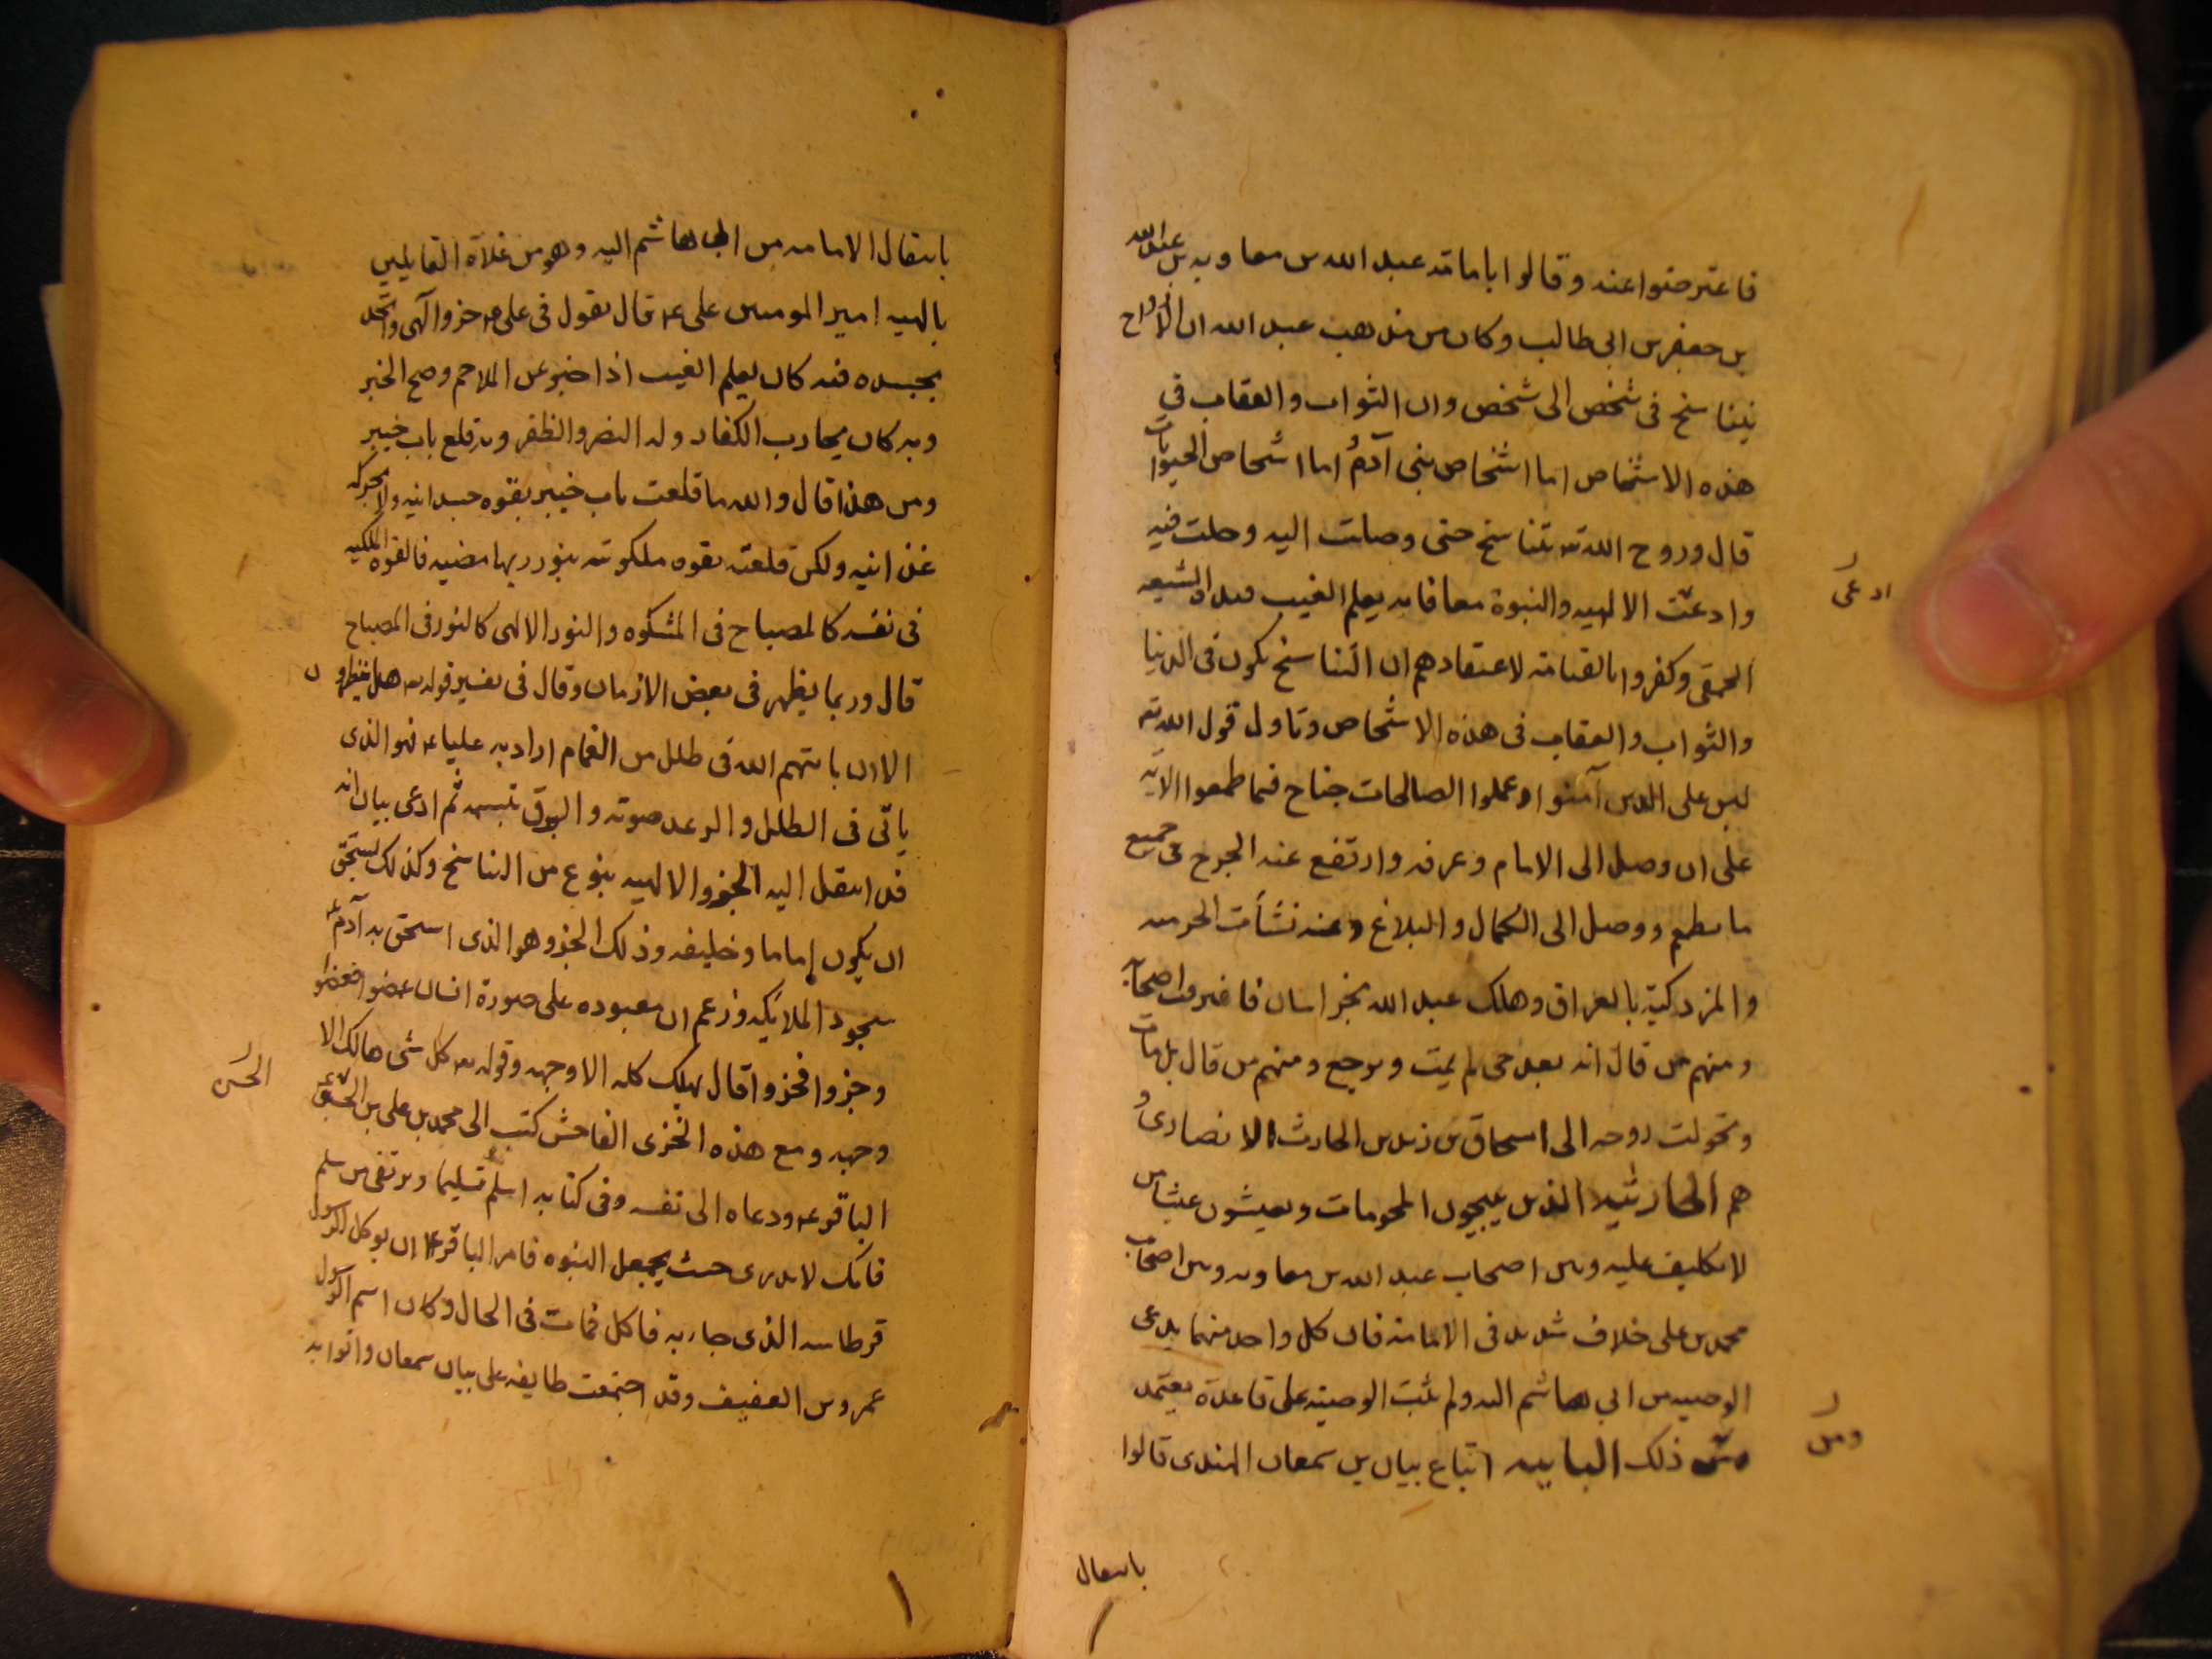 فاعترضوا عنه و قالوا بامامة عبد الله بن معاويه بن عبد الله
بن جعفر بن ابي طالب وكان من مذهب عبد الله ان الارواح
يتناسخ في شخص الى شخص وان الثواب والعقاب في
هذه الاشخاص اما اشخاص بني آدم اما اشخاص الحيوانات
قال وروح الله تع تناسخ حتى وصلت اليه وحلت فيه
وادعت الالهيه والنبوة معا فانه يعلم الغيب الشيعه
ادعى
الحمقى وكفروا بالقيامة لاعتقادهم ان التناسخ يكون في الدنيا
والثواب والعقاب في هذه الاشخاص وتاول قول الله تع
ليس على الذين آمنوا وعملوا الصالحات جناح فيما طعموا الآية
على ان وصل الى الامام وعرفه وارتفع عنه الحرج عن جميع
ما يطعم ووصل الى الكمال والبلاغ وعنه نشأت الخرميه
والمزدكية بالعراق وهلك عبد الله بخراسان فافترقت اصحابه
ومنهم من قال انه بعد حى لم يمت ويرجع ومنهم من قال بل مات
وتحولت روحه الى اسحاق بن زيد بن الحارث الانصارى و
هم الحارثيه الذين يبيحون المحرمات ويعيشون عيش من
لا تكليف عليه وبين اصحاب عبد الله بن معاويه وبين اصحاب
محمد بن علي خلاف شديد في الامامة فان كل واحد منهما يدعى
الوصيه من ابي هاشم اليه ولم يثبت الوصية على قاعدة يعتمد
ومن
ذلك البيانيه اتباع بيان بن سمعان الهندى قالوا
بانتقال
بانتقال الامامه من ابي هاشم اليه وهو من غلاة القايلين
بالهيه امير المومنين على ع قال يقول في على ع جزو آلهى واتحد
بجسده فيه كان يعلم الغيب اذا خبر عن الملاحم وصح الخبر
وبه كان يحارب الكفار وله النصر والظفر وبه قلع باب خيبر
ومن هذا قال والله ما قلعت باب خيبر بقوه جسدانيه ولا بحركه
غذانيه ولكن قلعته بقوه ملكوتيه بنور ربها مضيه فالقوه الملكيه
في نفسه كالمصباح في المشكوه والنور الالهى كالنور في المصباح
قال وربما يظهر في بعض الازمان وقال في تفسير قوله تع هل ينظرون
الا ان ياتيهم الله في ظلل من الغمام اراد به عليا ع فهو الذى
ياتى في الظلل والرعد صوته والبرق تبسمه ثم ادعى بيان انه
قد انتقل اليه الجزو الالهيه بنوع من التناسخ وكذلك يستحق
ان يكون إماما وخليفه وذلك الجزو هو الذى استحق به آدم ع
سجود الملائكه وزعم ان معبوده على صورة انسان عضوا فعضوا
وجزوا فجزوا قال يهلك كله الا وجهه وقوله تع كل شى هالك الا
وجهه ومع هذه الخزى الفاحش كتب الى محمد بن على بن
الحسين
الباقر ع ودعاه الى نفسه وفى كتابه اسلم تسليما ويرتقى من سلم
فانك لا تدرى حيث يجعل النبوه فامر الباقر ع ان يوكل الرسول
قرطاسه الذى جا به فاكل فمات في الحال وكان اسم الرسول
عمر وبن العفيف وقد اجتمعت طايفه على بيان سمعان وانوا به